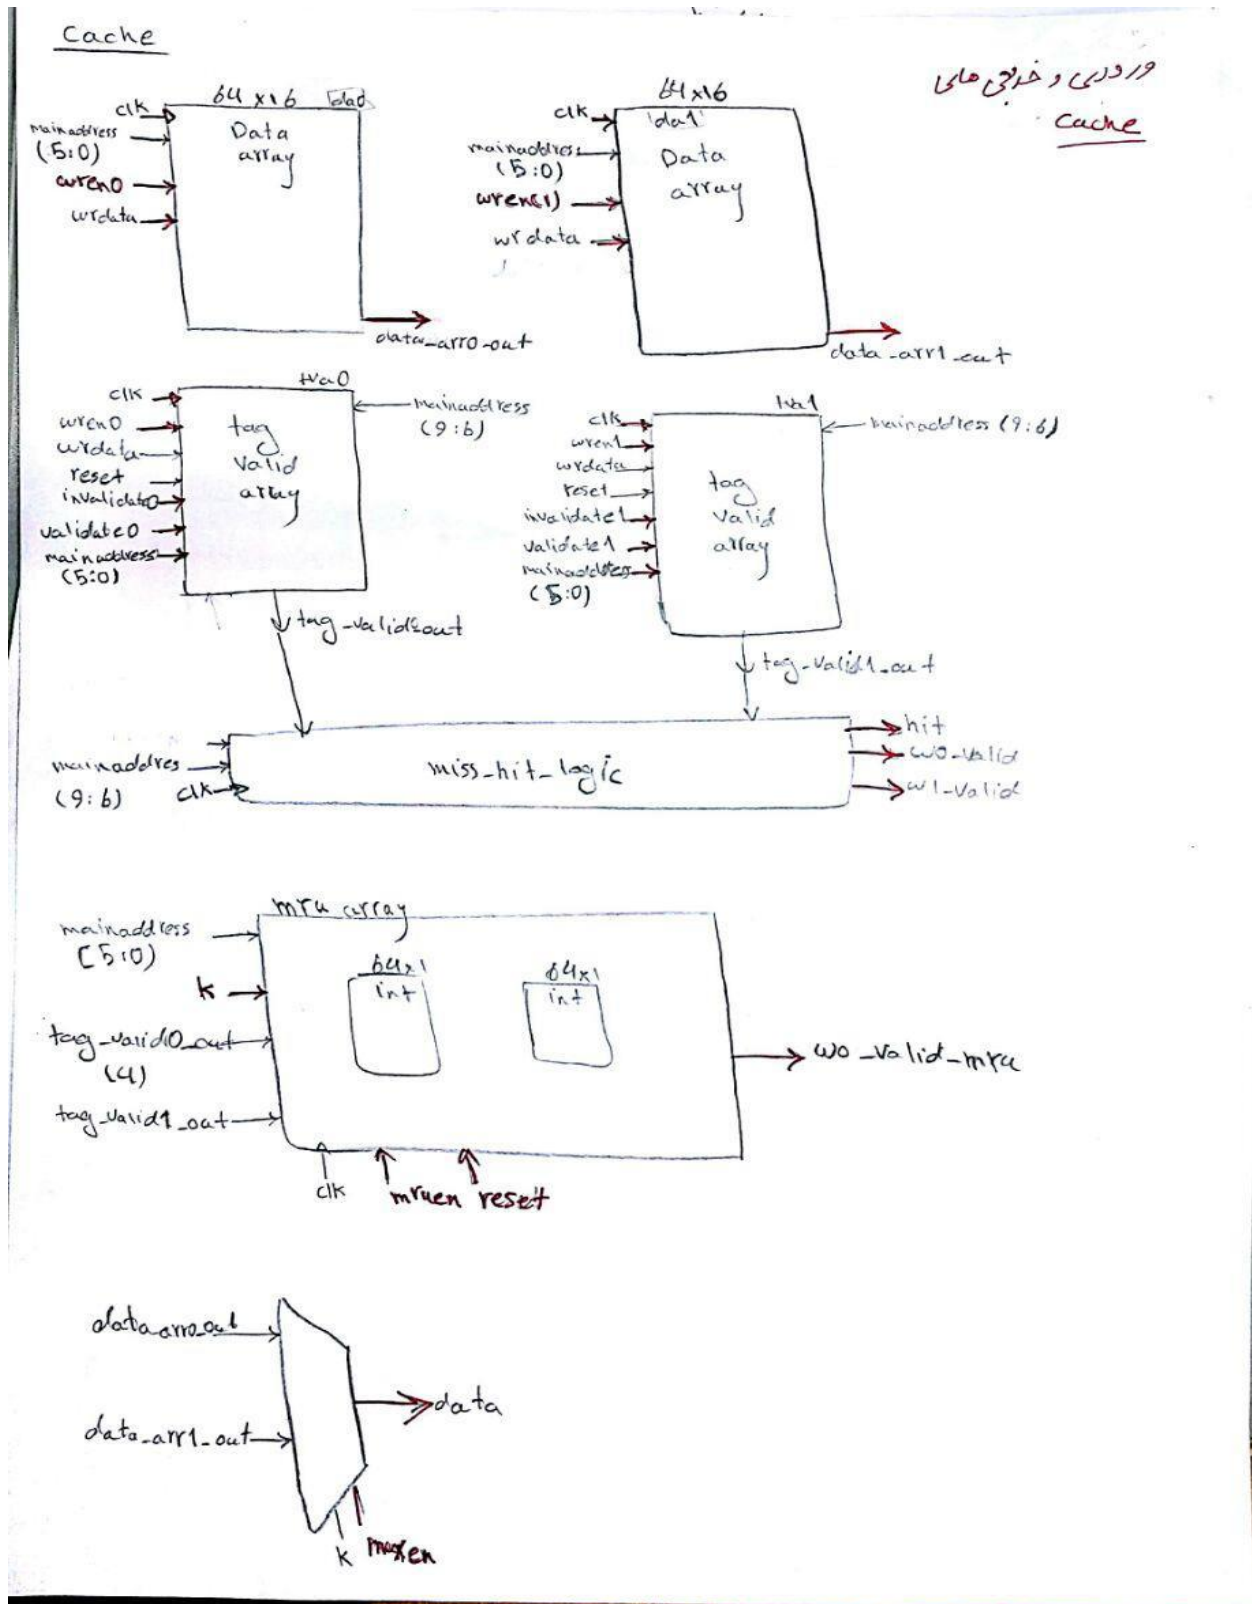 Cache
ورودی و خروجی های
Cache
64x16 da0
clk
mainaddress
(5:0)
wren0
wrdata
Data
array
data_arr0_out
64x16
clk
da1
mainaddress
(5:0)
wren(1)
wrdata
Data
array
data_arr1_out
tva0
clk
wren0
wrdata
reset
invalidate0
validate0
mainaddress
(5:0)
tag
valid
array
mainaddress
(9:6)
tag_valid0_out
tva1
clk
wren1
wrdata
reset
invalidate1
validate1
mainaddress
(5:0)
tag
valid
array
mainaddress (9:6)
tag_valid1_out
mainaddres
(9:6)
clk
miss_hit_logic
hit
w0_valid
w1_valid
mru_array
mainaddress
[5:0)
k
tag_valid0_out
(4)
tag_valid1_out
64x1
int
64x1
int
w0_valid_mru
clk
mruen reset
data_arr0_out
data_arr1_out
data
k